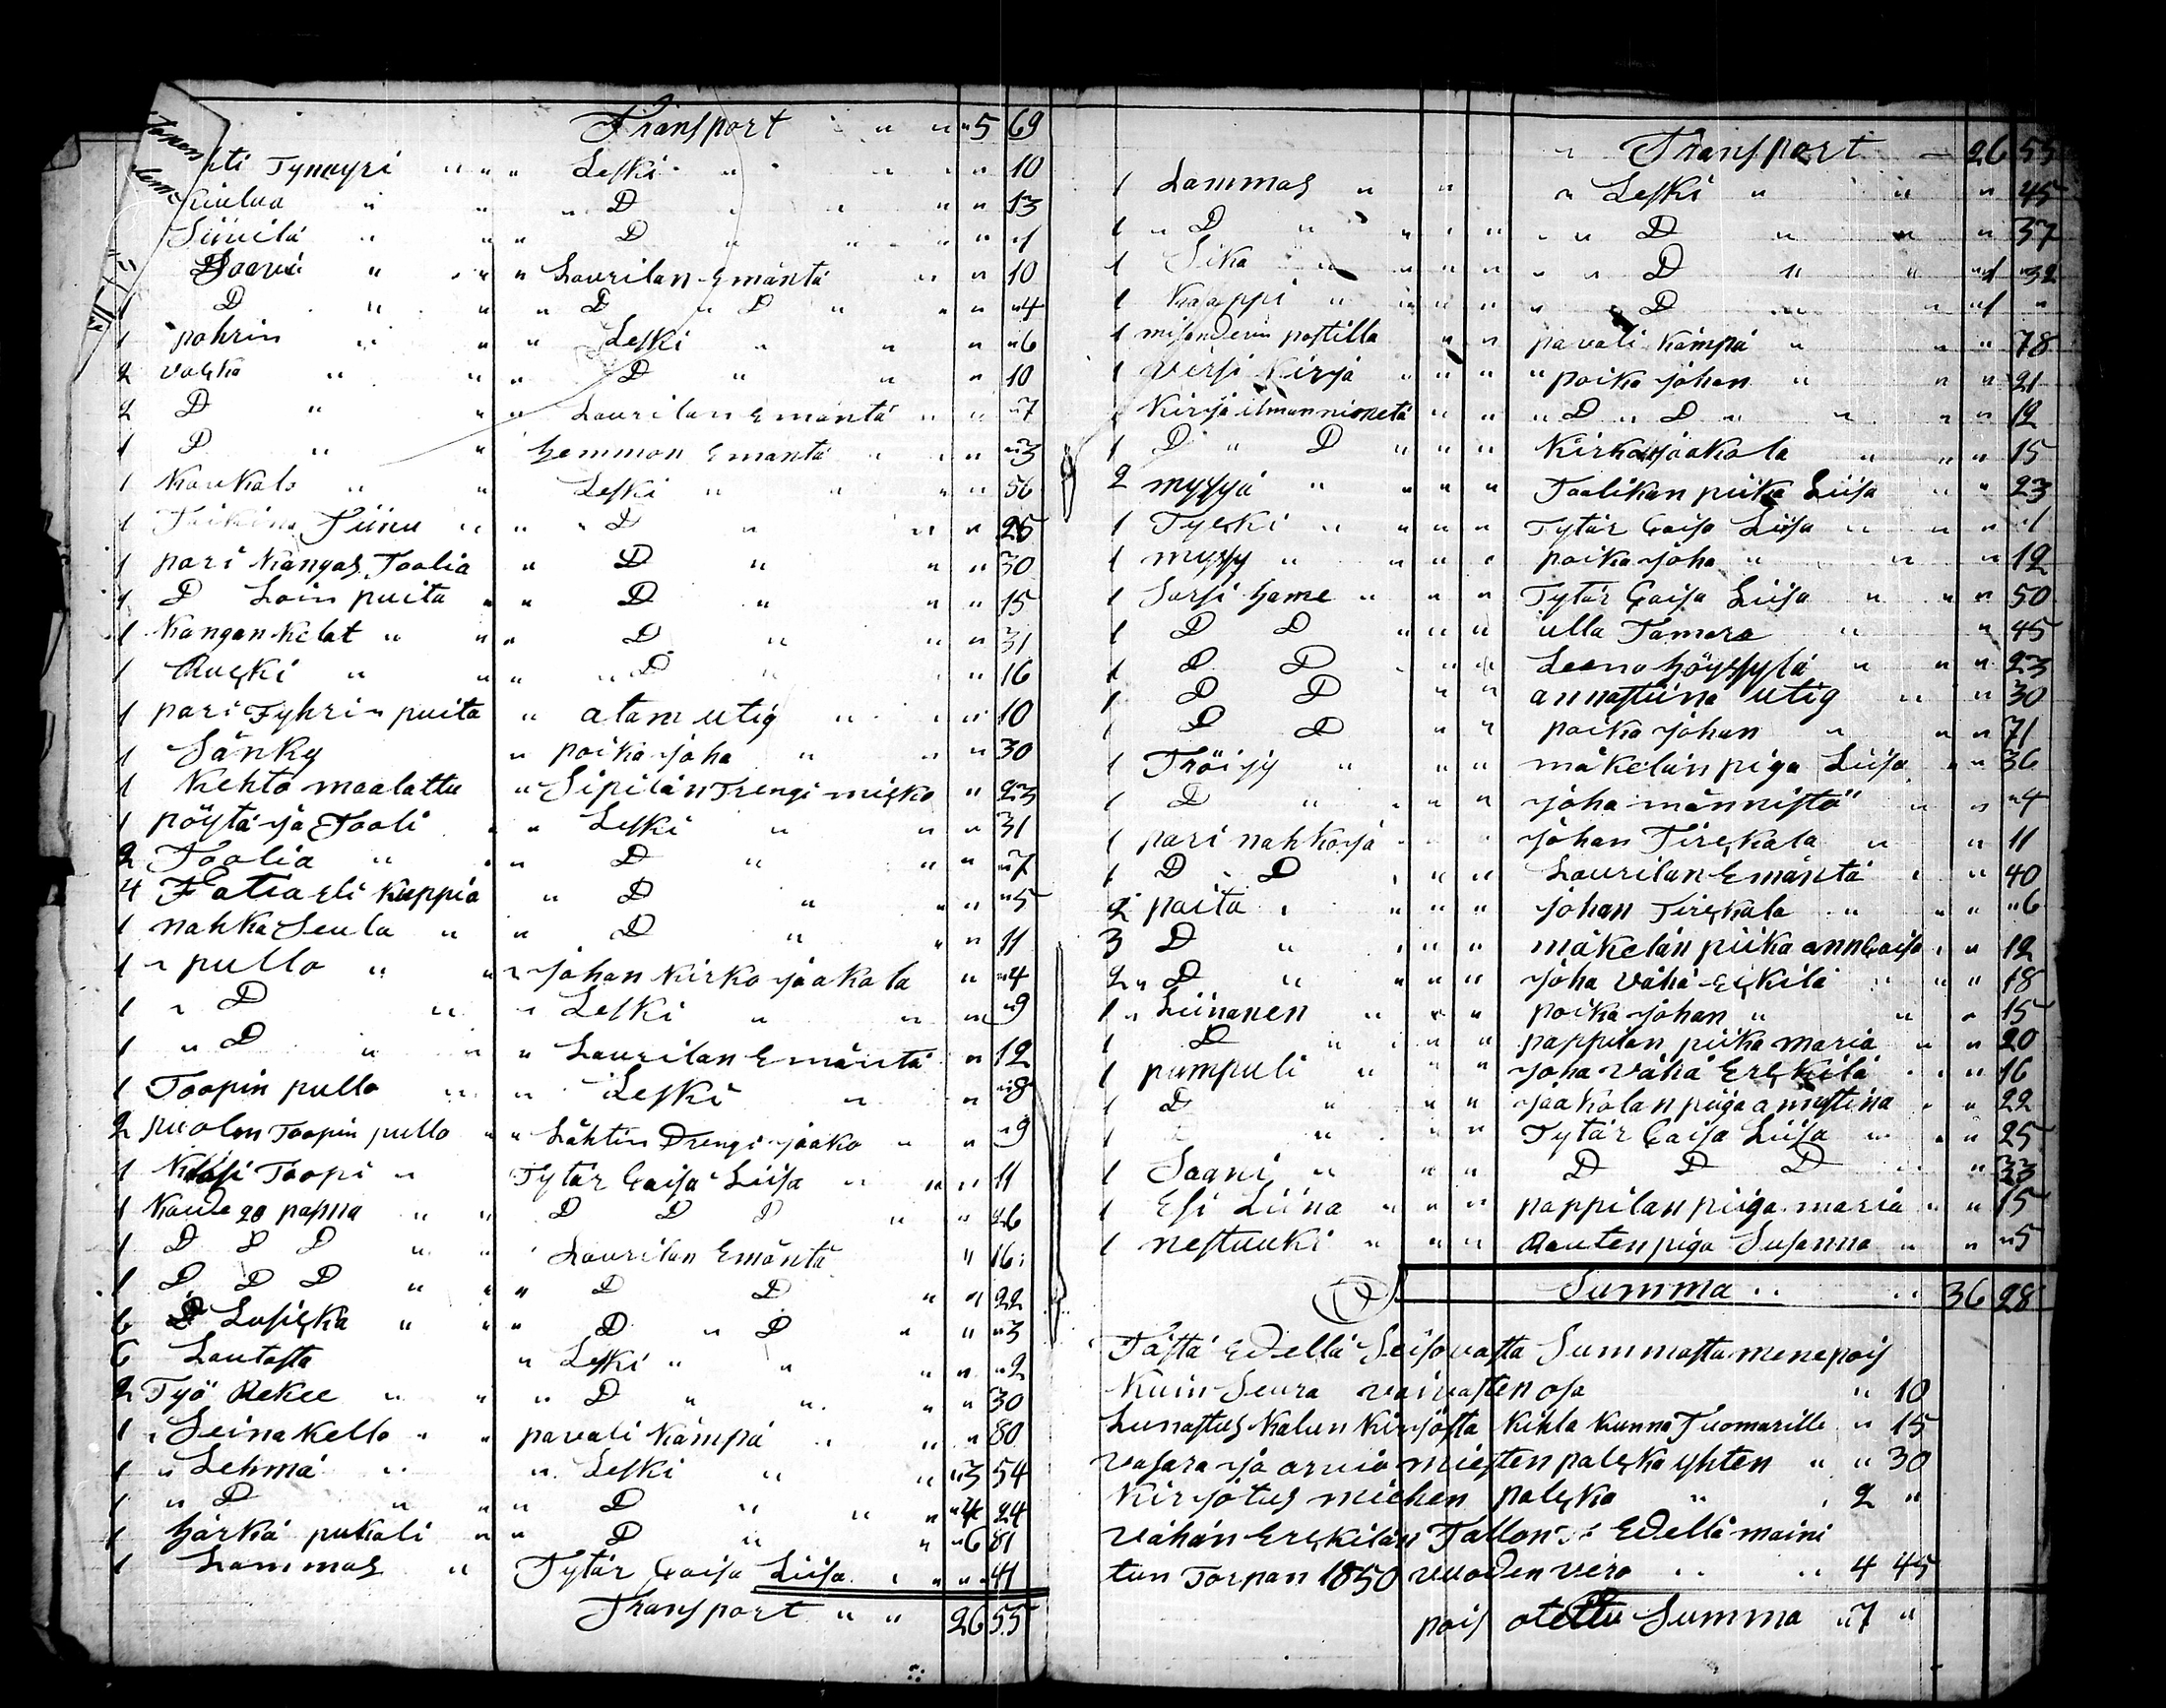 Transport " " " 5 69
Tynnyri " " " Leski " " " 10
" " " D " " " 13
" " " D " " " 1
" " " Laurilan Emäntä " " 10
1 D " " " D " D " " " 4
1 pohrin " " " Leski " " " 6
2 vacka " " " D " " " 10
2 D " " " Laurilan Emäntä " " 7
1 D " " Hemmon Emäntä " " 3
1 Kaukalo " " Leski " " " 56
1 Taikina Tiinu " " " D " " " 25
1 pari Kangas Toolia " D " " " 30
1 D Loin puita " " D " " " 15
1 Kangan Kelat " " " D " " " 31
1 Rucki " " " " D " " 16
1 pari Tyhrin puita " atam utig " " " 10
1 Sänky " poika joha " " " 30
1 Kehto maalattu " Sipilän Trengi micko " 23
1 pöytä ja Tooli " " Leski " " " 31
2 Toolia " " " D " " " 7
4 Fatia eli Kuppia " D " " " 5
1 nahka Seula " " D " " " 11
1 " pullo " " johan Kirko jaakola " " 4
1 " D " " Leski " " " 9
1 " D " " " Laurilan Emäntä " 12
1 Toopin pullo " " Leski " " 8
2 puolen Toopin pullo " " Lähtin Drengi jaako " " 9
1 Klasi Toopi " Tytär Caisa Liisa " " " 11
1 Kaude 20 papna " " D D D " " 26
1 D D D " " " Laurilan Emäntä " 16
1 D D D " " " D D " " 22
6 D Lusicka " " " D " D " " 3
6 Lautasta " Leski " " " " 2
2 Työ Rekee " " " D " " " " 30
1 " Seinä Kello " " pavali Kämpä " " " 80
1 " Lehmä " " Leski " " 3 54
1 " D " " " D " " " 4 24
1 Härkä pukali " " D " " 6 81
1 Lammas " Tytär Caisa Liisa " " " 41
Transport " " 26 55
" Transport " 26 55
1 Lammas " " " Leski " " " 45
1 " D " " " " " " D " " " 37
1 Sika " " " " " " D " " 1 32
1 Kaappi " " " " " D " " 1 "
1 postilla " " pavali Kämpä " " " 78
1 virsi Kirja " " " " poika johan " " " 21
Kirja ilman nimetä " " " " D " D " " " 12
1 D " D " " " Kirko jaakola " " " 15
2 myssyä " " " " Toolikan piika Liisa " " 23
1 Tycki " " " " Tytär Caisa Liisa " " " 1
1 myssy " " " " poika joha " " " 12
1 Sarsi Hame " " " Tytär Caisa Liisa " " " 50
1 D D " " " ulla Tamara " " 45
1 D D " " Leena Höyssylä " " " 23
1 D D " " annastiina utig " " 30
1 D D " " poika johan " " " 71
1 Tröijy " " " mäkelän piga Liisa " " 36
1 D " " " " joha männistö " " 4
1 pari nahkoja " " johan Tirckala " " 11
1 D " D " " " Laurilan Emäntä " " 40
2 paita " " " " johan Tirckala " " " 6
3 D " " " " mäkelän piika annCaisa " " 12
2 " D " " " " joha vähä Erckilä " " " 18
1 " Liinanen " " " poika johan " " " 15
1 D " " " " pappilan piika maria " " 20
1 pumpuli " " " joha vähä Erckilä " " " 16
1 D " " " jaakolan piiga annstina " " 22
1 " " " Tytär Caisa Liisa " " " 25
1 Saani " " " D D D " " 33
1 Esi Liina " " " pappilan piiga maria " " 15
1 nestuuki " " " Rauten piga Susanna " " " 5
Summa " " 36 28
Tästä Edellä Seisovasta Summasta mene pois
Kuin Seura vaivasten osa " 10
Lunastus Kalun Kirjosta Kihla Kunna Tuomarille " 15
vasara ja arvio miesten palcka yhten " " 30
Kirjotus miehen palcka " 2 "
vähän Erckilän Tallon Edellä maini
tun Torpan 1850 vuoden vero " " 4 45
pois otettu Summa " 7 "